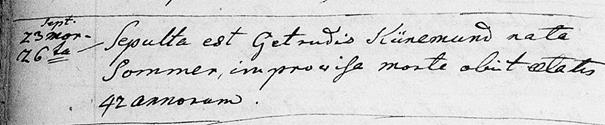 Sept.
23 mor-
26 ta
Sepulta est Getrudis Künemund nata
Sommer, improvisa morte obiit ætatis
42 annorum.